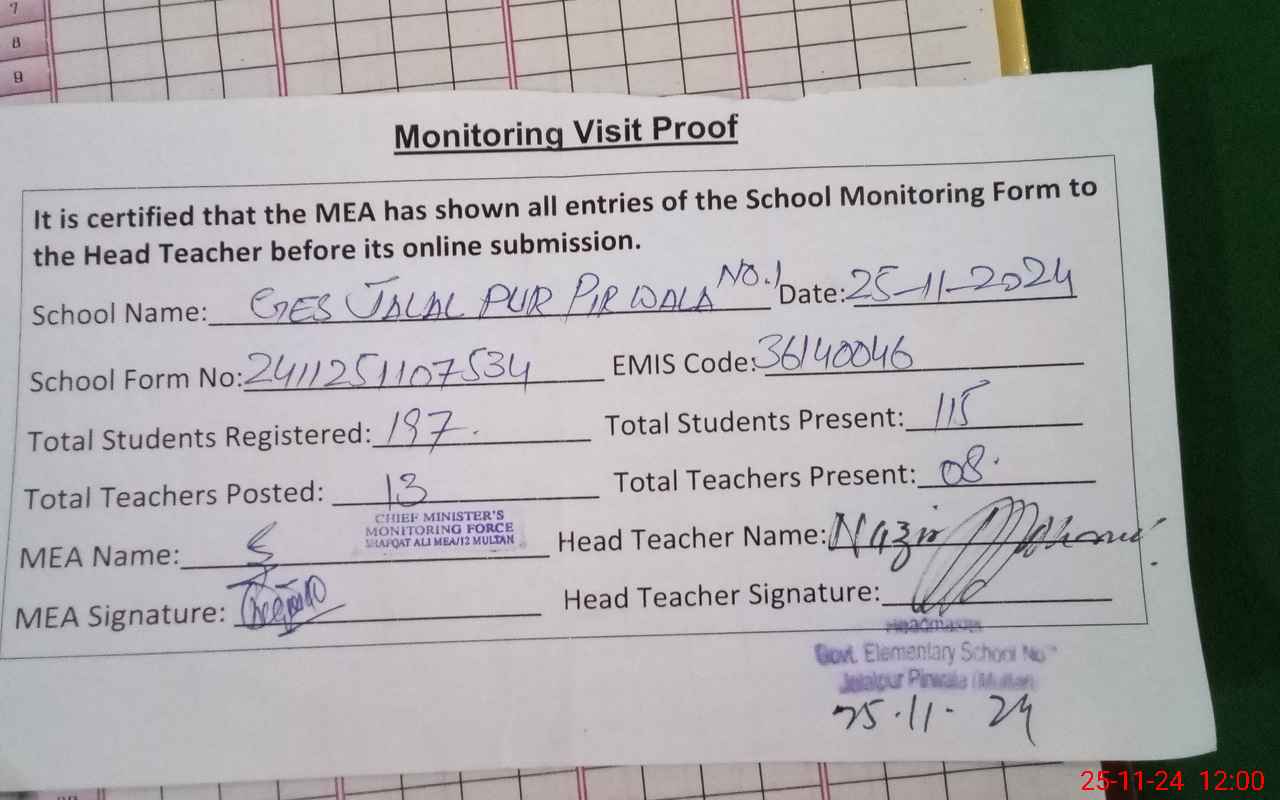 7
8
9
Monitoring Visit Proof
It is certified that the MEA has shown all entries of the School Monitoring Form to
the Head Teacher before its online submission.
School Name: GES JALAL PUR PIR WALA NO.1 Date: 25-11-2024
School Form No: 2411251107534 EMIS Code: 36140046
Total Students Registered: 197. Total Students Present: 115
Total Teachers Posted: 13 Total Teachers Present: 08.
CHIEF MINISTER'S
MONITORING FORCE
SHAFQAT ALI MEA/12 MULTAN
MEA Name: Head Teacher Name: Nazir
MEA Signature: Head Teacher Signature:
Headmaster
Govt. Elementary School No
Jalalpur Pirwala (Multan)
25.11.24
25-11-24 12:00